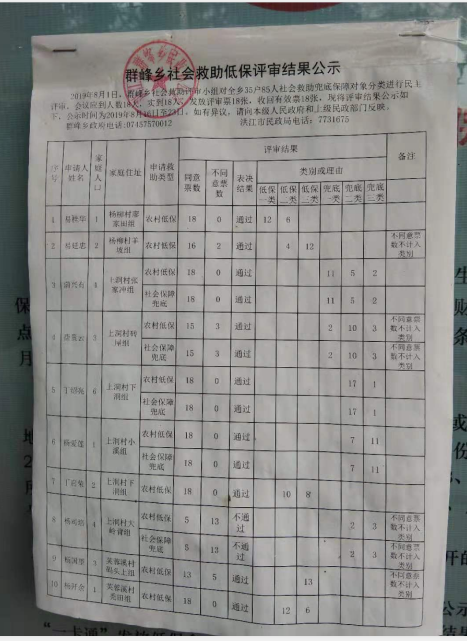 群峰乡社会救助低保评审结果公示
2019年8月1日,群峰乡社会救助评审小组对全乡35户85人社会救助兜底保障对象分类进行民主
评审,会议应到人数18人,实到18人,发放评审票18张,收回有效票18张,现将评审结果公示如
下,公示时间为2019年8月16日至22日。如有异议,请向本级人民政府和上级民政部门反映。
群峰乡政府电话:07457570012 洪江市民政局电话:7731675
序号 申请人姓名 家庭人口 家庭住址 申请救助类型 评审结果 备注
同意票数 不同意票数 表决结果 类别或理由
低保一类 低保二类 低保三类 兜底一类 兜底二类 兜底三类
1 易 1 杨柳村 家田组 农村低保 18 0 通过 12 6
2 易延忠 2 杨柳村 坡组 农村低保 16 2 通过 4 12 不同意票数不计入类别
3 4 上洞村张家冲组 农村低保 18 0 通过 11 5 2
社会保障兜底 18 0 通过 11 5 2
4 云 3 上洞村转屋组 农村低保 15 3 通过 2 10 3 不同意票数不计入类别
社会保障兜底 15 3 通过 2 10 3 不同意票数不计入类别
5 丁 6 上洞村下洞组 农村低保 18 0 通过 17 1
社会保障兜底 18 0 通过 17 1
6 杨 莲 1 上洞村小溪组 农村低保 18 0 通过 7 11
社会保障兜底 18 0 通过 7 11
7 丁 2 上洞村下洞组 农村低保 18 0 通过 10 8
8 杨 4 上洞村大岭背组 农村低保 5 13 不通过 2 3 不同意票数不计入类别
社会保障兜底 5 13 不通过 2 3 不同意票数不计入类别
9 杨 3 芙蓉溪村码头上组 农村低保 13 5 通过 13 不同意票数不计入类别
10 杨 1 芙蓉溪村 田组 农村低保 18 0 通过 12 6